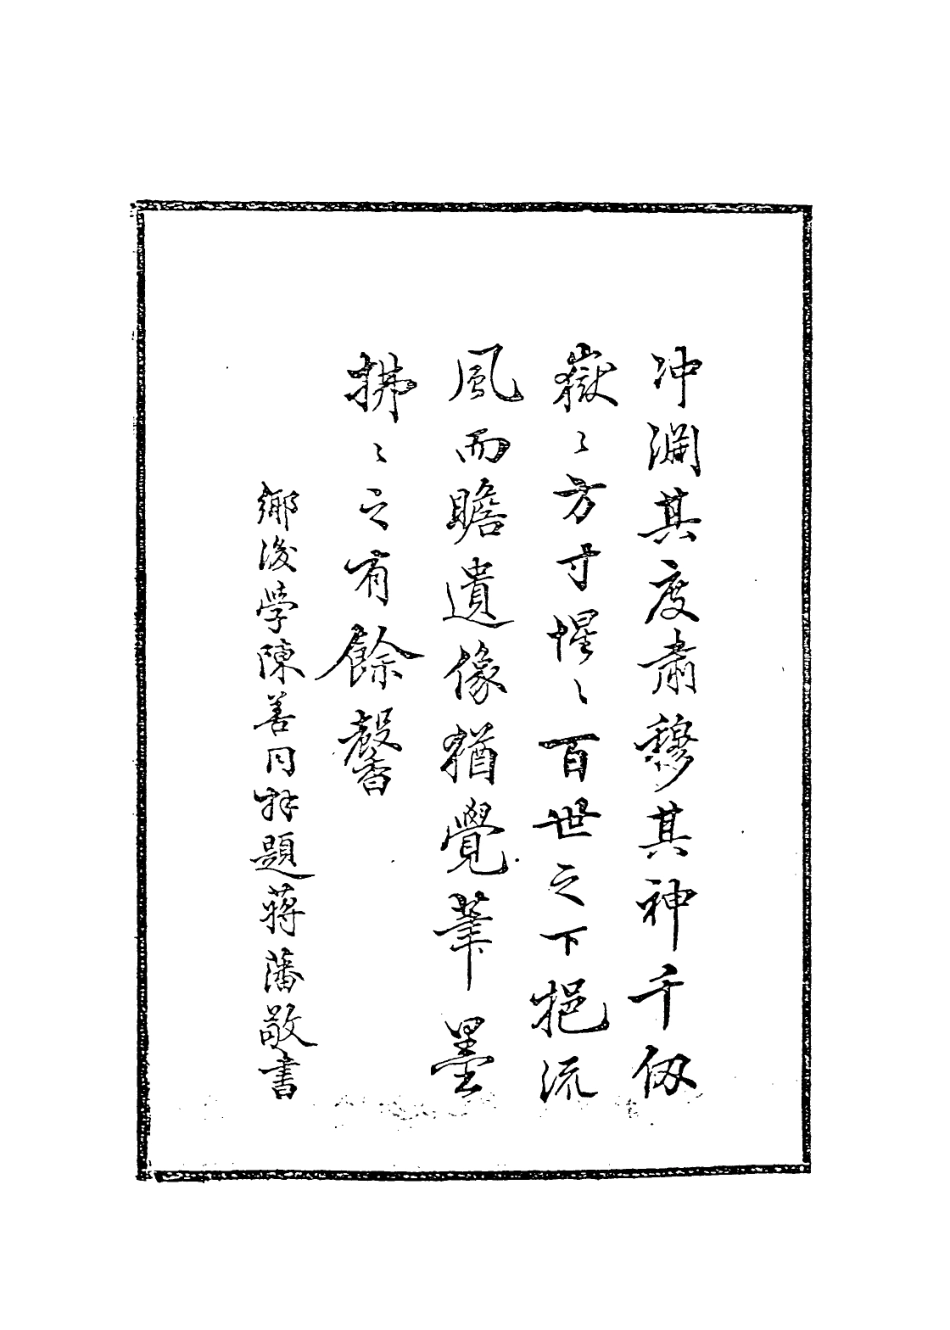 冲瀾其度肅穆其神千仞
嶽〻方寸惺〻百世之下挹流
風而瞻遺像猶覺筆墨
拂〻之有餘馨
鄉後學陳善同拜題蔣藩敬書